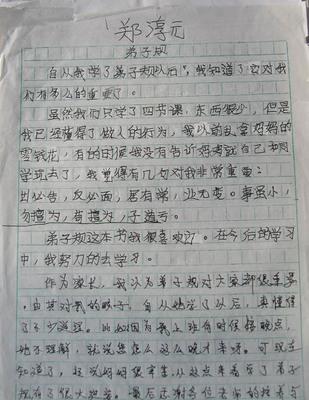 郑淳元
弟子规
自从我学了弟子规以后，我知道了它对我
们有多么的重要了。
虽然我们只学了四节课，东西很少，但是
我已经懂得了做人的行为，我以前乱拿妈妈的
零钱花，有的时候我没有告诉妈妈就自己和同
学玩去了，我觉得有几句对我非常重要：
出必告，反必面，居有常，业无变。事虽小，
勿擅为，苟擅为，子道亏。
弟子规这本书我很喜欢。在今后的学习
中，我努力的去学习。
作为家长，我认为弟子规对大家都很重要
，由其对我的孩子，自从她学了以后，真懂得
了不少道理。比如因为我上班有时候错晚点，
她不理解，就说您怎么这么晚才来呀。可现在
知道了，从这点来看学了弟子
规有了很大改变。最后还谢各位老师的培养与